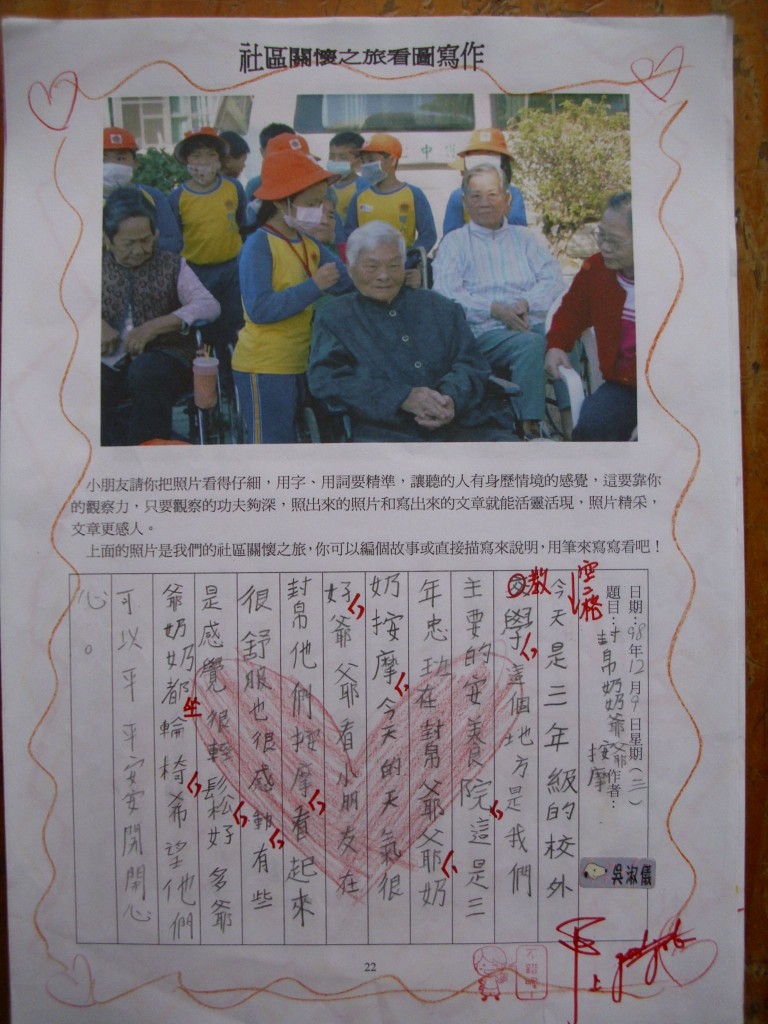 社區關懷之旅看圖寫作
中
小朋友請你把照片看得仔細，用字、用詞要精準，讓聽的人有身歷情境的感覺，這要靠你
的觀察力，只要觀察的功夫夠深，照出來的照片和寫出來的文章就能活靈活現，照片精采，
文章更感人。
上面的照片是我們的社區關懷之旅，你可以編個故事或直接描寫來說明，用筆來寫寫看吧！
日期：98年12月9日星期（三）
題目：封帛奶奶爺爺按摩
作者：
吳淑儀
空二格
今天是三年級的校外
教
學這個地方是我們
主要的安養院這是三
年忠班在封帛爺爺奶
奶按摩今天的天氣很
好爺爺看小朋友在
封帛他們按摩看起來
很舒服也很感動有些
是感覺很輕鬆好多爺
爺奶奶都輪椅希望他們
坐
可以平平安安開開心
心。
不錯喔！
上
22